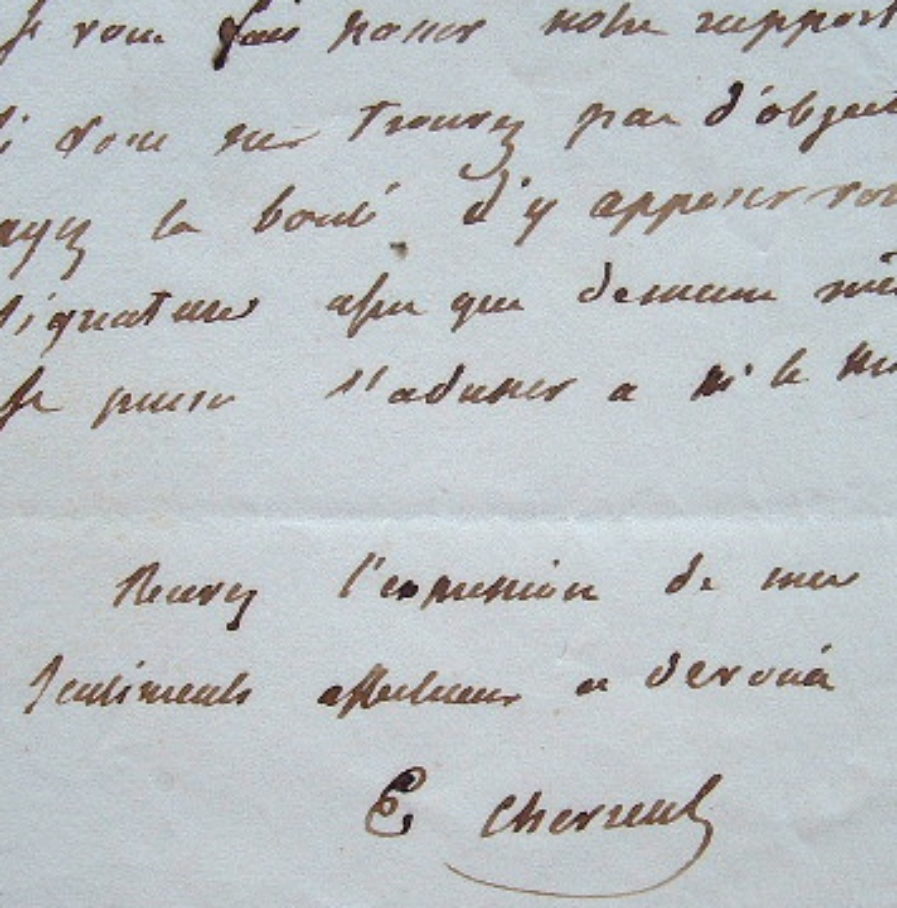 Je vous fais passer notre rapport
si vous ne trouvez pas d'object
ayez la bonté d'y apposer vot
signature afin que demain mê
je puisse l'adresser a Mr le Mi
Recevez l'expression de mes
sentiments affectueux et dévoués
E Chevreul